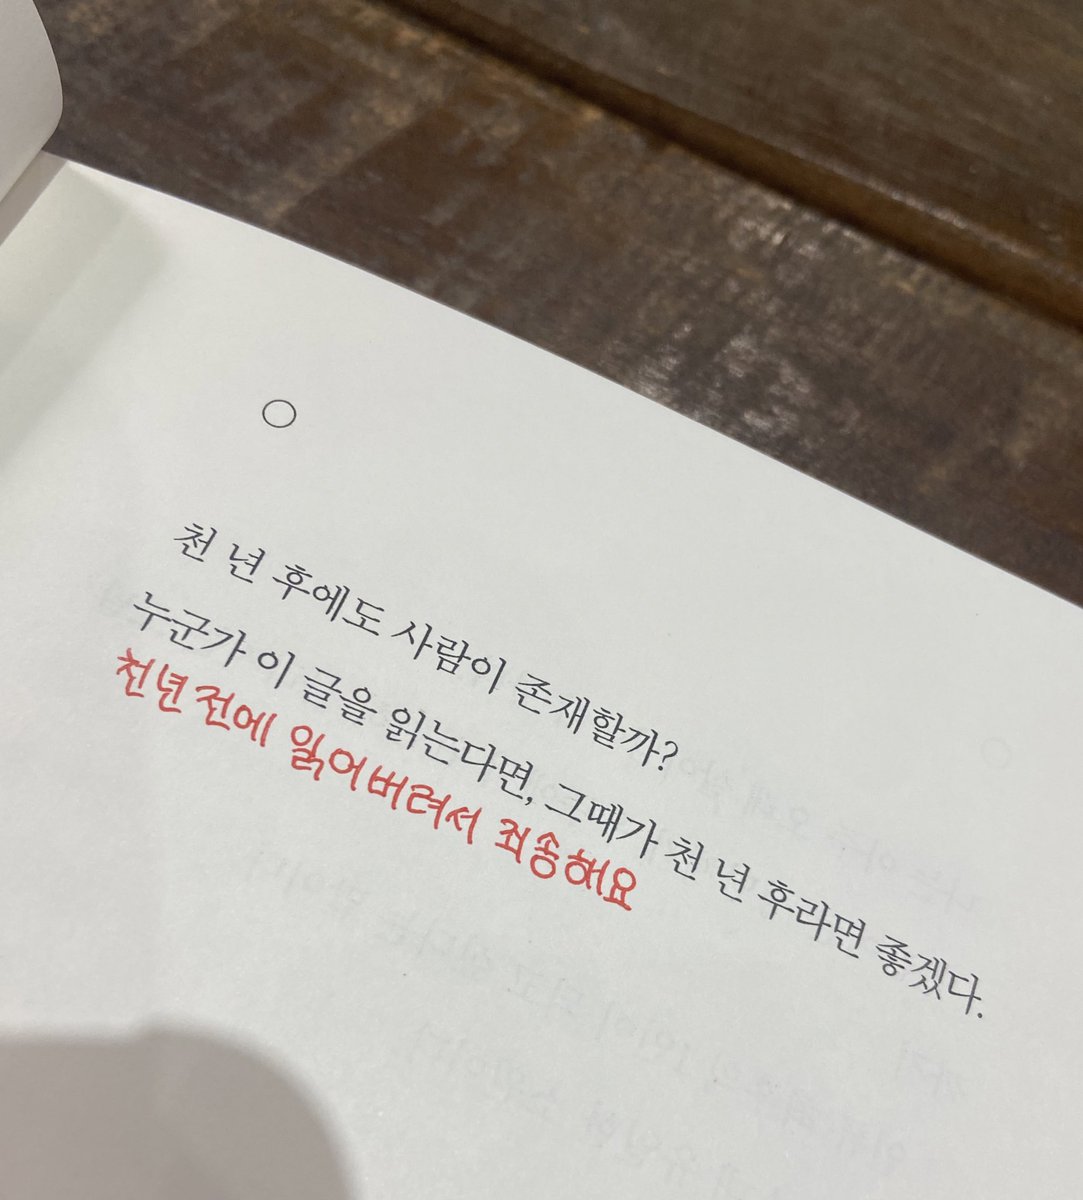 천 년 후에도 사람이 존재할까?
누군가 이 글을 읽는다면, 그때가 천 년 후라면 좋겠다.
천년 전에 읽어버려서 죄송해요